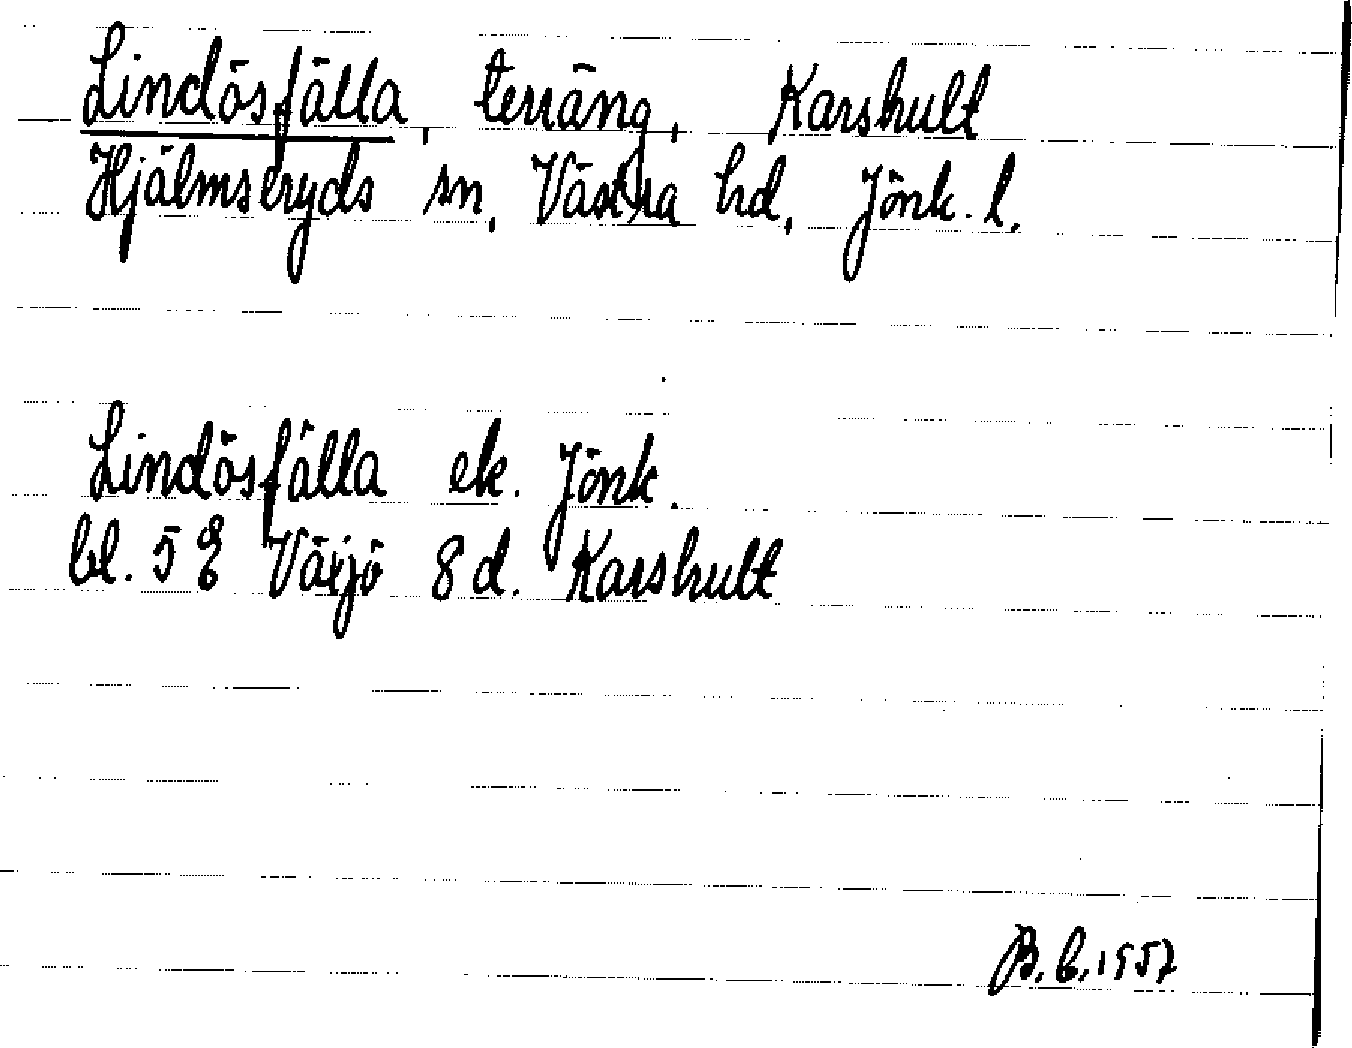 Lindösfälla, terräng, Karshult
Hjälmseryds sn, Västra hd, Jönk. l.
Lindösfälla ek. Jönk.
bl. 5 E Växjö 8 d. Karshult
B. E. 1957